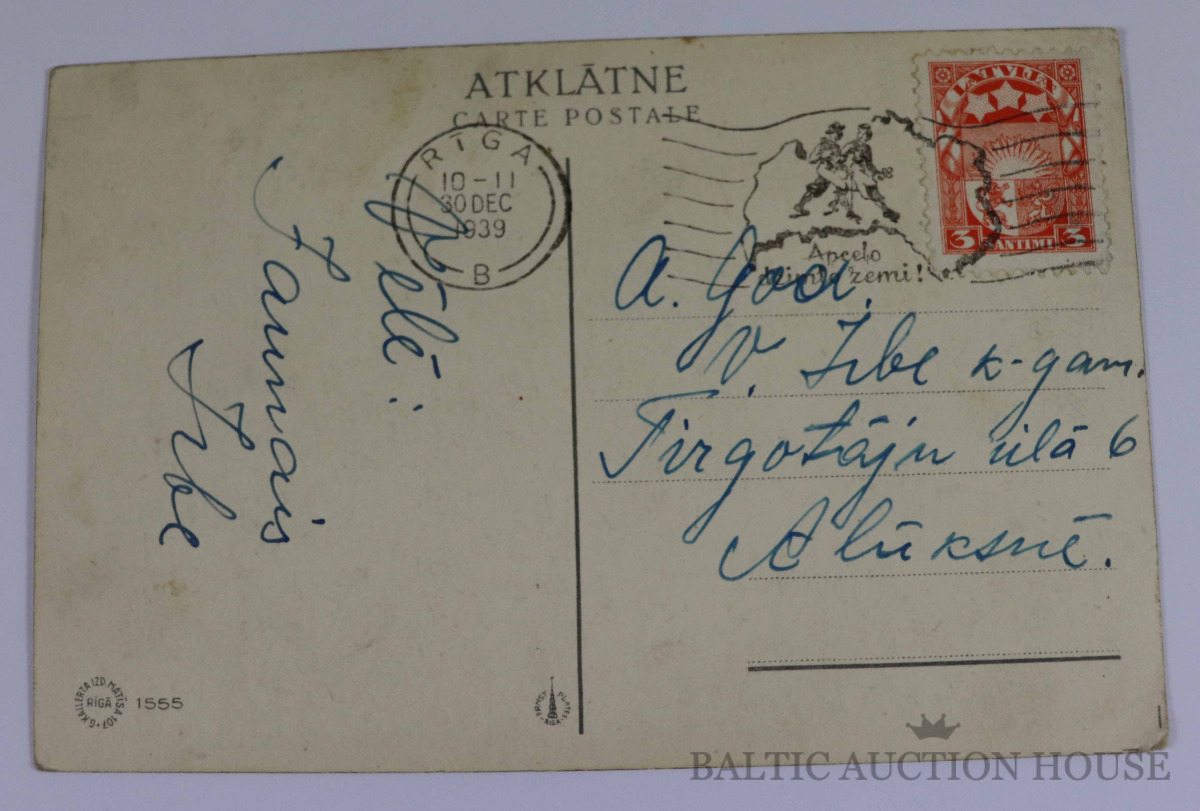 ATKLĀTNE
CARTE POSTALE
RĪGA
10-11
30 DEC
1939
B
Apceļo
dzimto zemi!
LATVIJA
3 SANTIMI 3
Vēlē:
Jaunais
Irbe
A. God.
V. Irbe k-gam.
Tirgotāju ielā 6
Alūksnē.
G. KALLERTA IZD. MATĪSA 107
RĪGĀ
1555
ERNST PLATES
RIGA
BALTIC AUCTION HOUSE